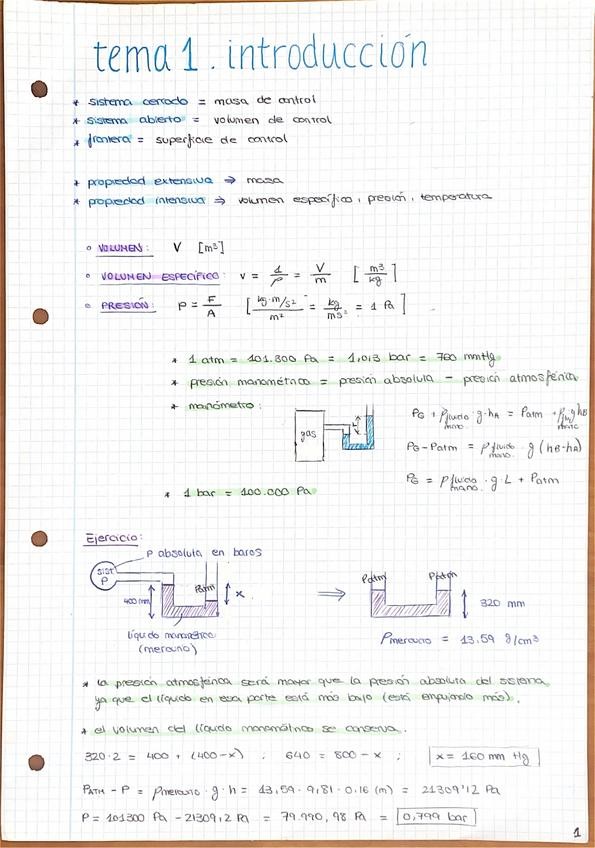 tema 1. introducción
* sistema cerrado = masa de control
* sistema abierto = volumen de control
* frontera = superficie de control
* propiedad extensiva ⇒ masa
* propiedad intensiva ⇒ volumen específico, presión, temperatura
∘ VOLUMEN: V [m³]
∘ VOLUMEN ESPECÍFICO: v = 1/ρ = V/m [m³/kg]
∘ PRESIÓN: P = F/A [kg·m/s² / m² = kg/ms² = 1 Pa]
* 1 atm = 101.300 Pa = 1,013 bar = 760 mmHg
* presión manométrica = presión absoluta - presión atmosférica
* manómetro:
gas
L
PG + ρfluido mano. · g · hA = Patm + ρflu mano g hB
PG - Patm = ρfluido mano. · g (hB - hA)
PG = ρfluido mano. · g · L + Patm
* 1 bar = 100.000 Pa
Ejercicio:
P absoluta en bares
sist P
400 mm
Patm
x
líquido manométrico
(mercurio)
⇒
Patm
Patm
320 mm
ρmercurio = 13.59 g/cm³
* la presión atmosférica será mayor que la presión absoluta del sistema
ya que el líquido en esa parte está más bajo (está empujando más).
* el volumen del líquido manométrico se conserva.
320·2 = 400 + (400-x) ; 640 = 800 - x ; x = 160 mm Hg
PATM - P = ρmercurio · g · h = 13,59 · 9,81 · 0.16 (m) = 21309'12 Pa
P = 101300 Pa - 21309,2 Pa = 79.990,98 Pa = 0,799 bar
1